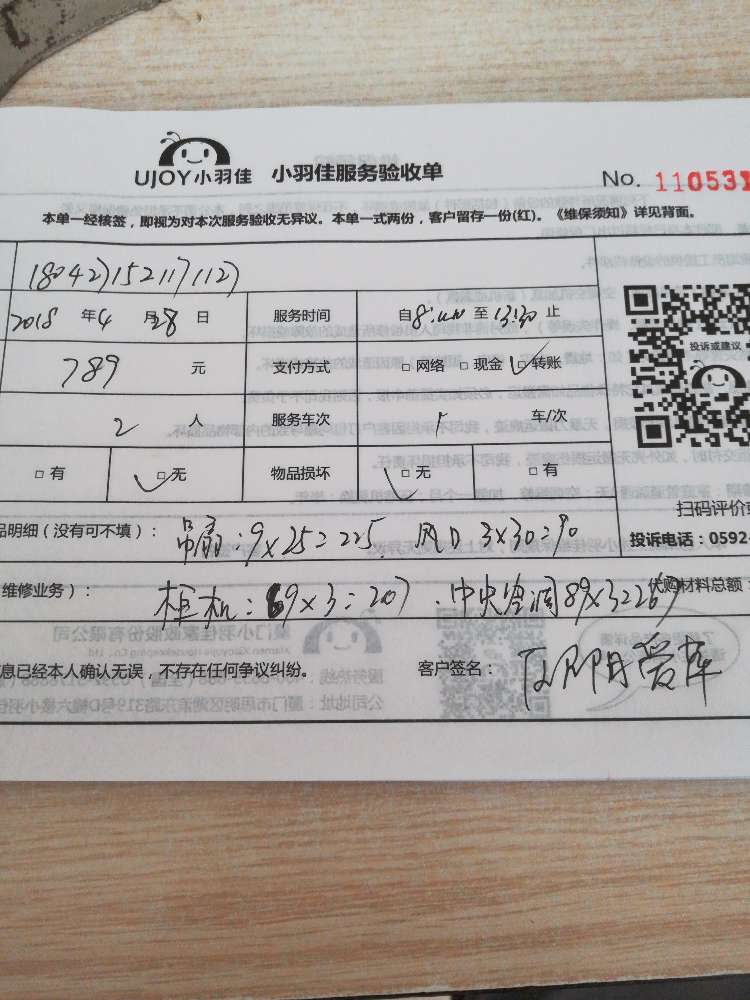 UJOY小羽佳 小羽佳服务验收单
No. 110531
本单一经核签，即视为对本次服务验收无异议。本单一式两份，客户留存一份(红)。《维保须知》详见背面。
2018 年 4 月 28 日 服务时间 自 8:00 至 13:30 止
789 元 支付方式 □ 网络 □ 现金 □ 转账
投诉或建议
2 人 服务车次 1 车/次
□ 有 □ 无 物品损坏 □ 无 □ 有
扫码评价
品明细（没有可不填）： 吊扇：9×25=225 风口 3×30=90
投诉电话：0592-
维修业务）： 柜机：69×3=207 中央空调89×3=267
优购材料总额：
息已经本人确认无误，不存在任何争议纠纷。 客户签名：